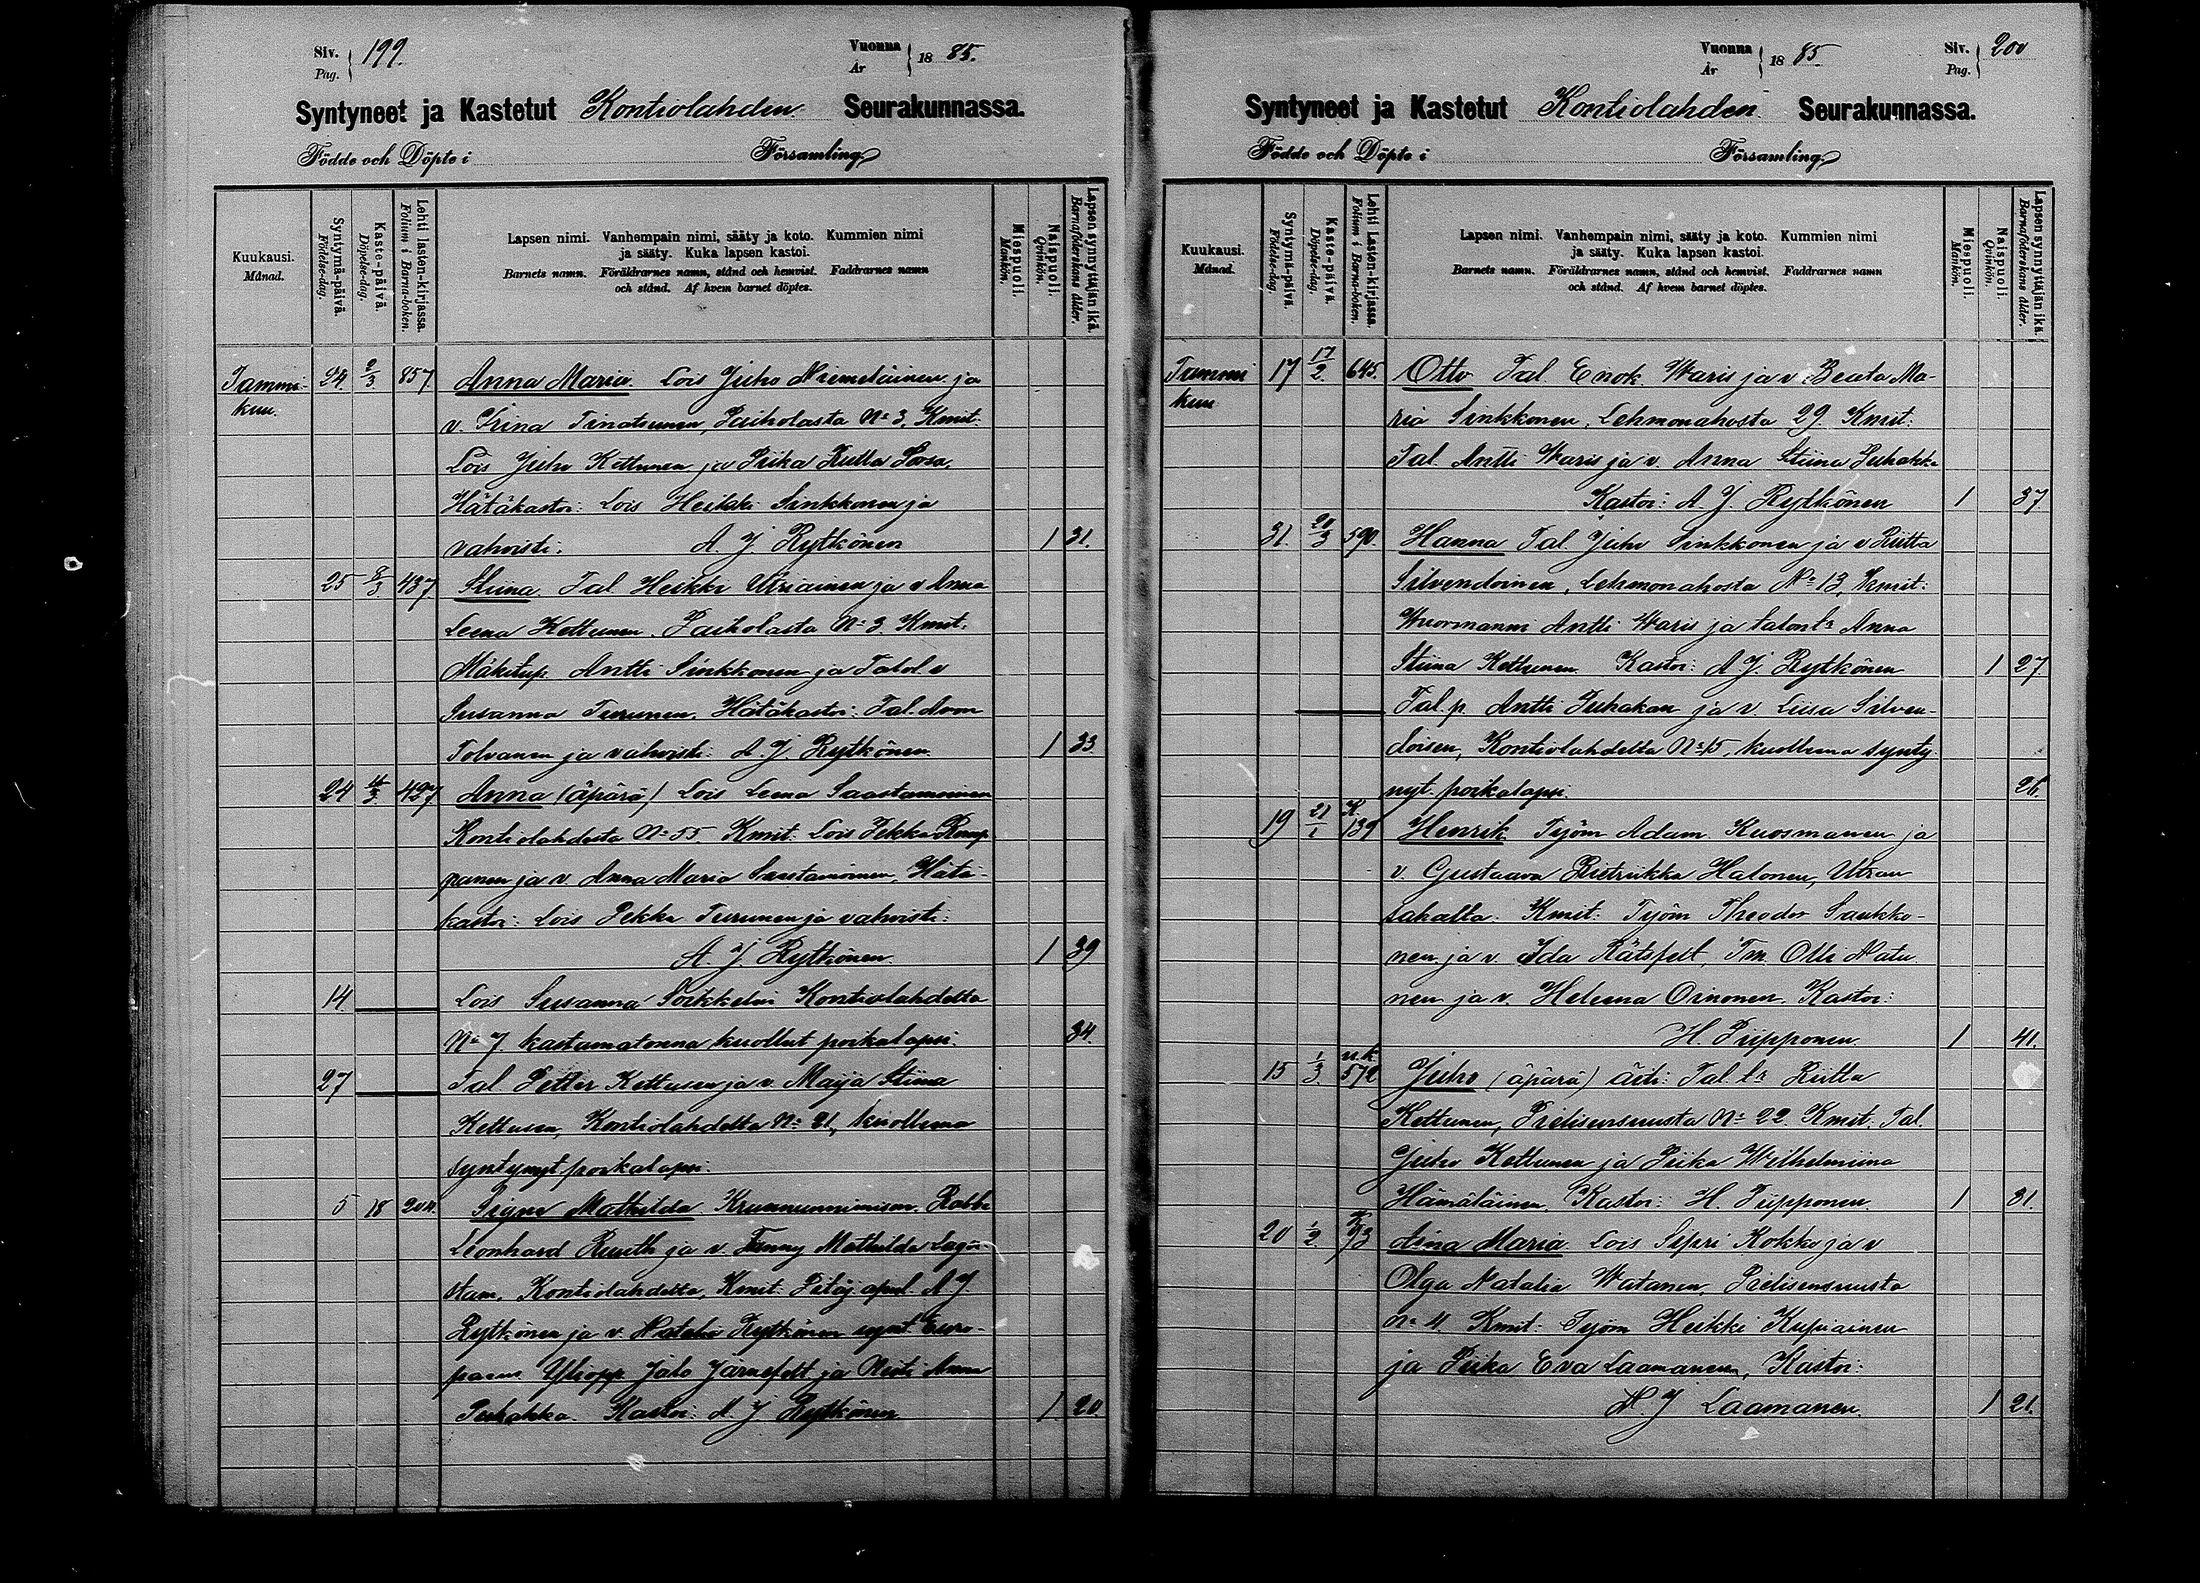 Siv. Pag. 199.
Vuonna År 1885.
Syntyneet ja Kastetut Kontiolahden Seurakunnassa.
Födde och Döpte i Församling
Kuukausi. Månad.
Syntymä-päivä. Födelse-dag.
Kaste-päivä. Döpelse-dag.
Lehti lasten-kirjassa. Folium i Barna-boken.
Lapsen nimi. Vanhempain nimi, sääty ja koto. Kummien nimi
ja sääty. Kuka lapsen kastoi.
Barnets namn. Föräldrarnes namn, stånd och hemvist. Faddrarnes namn
och stånd. Af hvem barnet döptes.
Miespuoli. Mankön.
Naispuoli. Qvinkön.
Lapsen synnyttäjän ikä. Barnaföderskans ålder.
Tammi- 24. 2/3 857 Anna Maria. Lois Juho Niemeläinen ja
kuu. v. Irina Tinatsunen, Paiholasta No 3, Kmit:
Lois Juho Kettunen ja Piika Riitta
Hätäkastoi: Lois Heikki Sinkkonen ja
vahvisti. A. J Rytkönen 1 31.
25 8/3 437 Stiina. Tal Heikki Utriainen ja v Anna
Leena Kettunen. Paiholasta No 3. Kmit.
Mäkitup. Antti Sinkkonen ja Talol. v
Susanna Turunen. Hätäkastoi: Tal.
Tolvanen ja vahvisti: A. J. Rytkönen. 1 33
24 4/3 427 Anna (äpärä) Lois Leena Saastamoinen
Kontiolahdesta No 55. Kmit: Lois Pekka Romp-
panen ja v. Anna Maria Saastamoinen, Hätä-
kastoi: Lois Pekka Turunen ja vahvisti:
A. J Rytkönen. 1 39
14. Lois Susanna Soikkelin Kontiolahdelta
No 7. kastamatonna kuollut poikalapsi. 34.
27 Tal Petter Kettusen ja v. Maija Stiina
Kettusen, Kontiolahdelta No 21, kuollena
syntynyt poikalapsi.
5 18 204. Signe Mathilda. Kruununnimism. Robb.
Leonhard Ruuth ja v. Fanny Mathilda Lagu-
stam. Kontiolahdelta, Kmit: Pitäj. apul. A J.
Rytkönen ja v. Natalia Rytkönen synt. Euro-
paeus Yliopp. Jalo Järnefelt ja Neiti Anna
Puhakka. Kastoi: A J Rytkönen 1. 20.
Vuonna År 1885.
Siv. Pag. 200
Syntyneet ja Kastetut Kontiolahden Seurakunnassa.
Födde och Döpte i Församling
Kuukausi. Månad.
Syntymä-päivä. Födelse-dag.
Kaste-päivä. Döpelse-dag.
Lehti Lasten-kirjassa. Folium i Barna-boken.
Lapsen nimi. Vanhempain nimi, sääty ja koto. Kummien nimi
ja sääty. Kuka lapsen kastoi.
Barnets namn. Föräldrarnes namn, stånd och hemvist. Faddrarnes namn
och stånd. Af hvem barnet döptes.
Miespuoli. Mankön.
Naispuoli. Qvinkön.
Lapsen synnyttäjän ikä. Barnaföderskans ålder.
Tammi 17 17/2. 645. Otto Tal. Enok Waris ja v. Beata Ma-
kuu ria Sinkkonen, Lehmonahosta 29. Kmit:
Tal. Antti Waris ja v. Anna Stiina Puhakka
Kastoi: A. J. Rytkönen 1 37
31. 20/3 590. Hanna Tal. Juho Sinkkonen ja v Riitta
Silvendoinen, Lehmonahosta No 13, Kmit:
Wuormanni Antti Waris ja talont:r Anna
Stiina Kettunen. Kastoi: A J. Rytkönen 1 27.
Tal. p. Antti Puhakan ja v. Liisa Silven-
doisen, Kontiolahdelta No 15, kuollena synty-
nyt. poikalapsi. 26.
19 21/1 K. 139 Henrik Työm Adam. Kuosmanen ja
v. Gustaava Rietriikka Halonen, Utran
sahalta. Kmit: Työm Theodor Saukko-
nen ja v. Ida Rätsfelt, Tm. Otti Natu-
nen ja v. Heleena Oinonen. Kastoi:
H. Piipponen. 1 41.
15 1/3 uk 572 Juho (äpärä) äiti: Tal. tr Riitta
Kettunen, Pielisensuusta No 22. Kmit. Tal.
Juho Kettunen ja Piika Wilhelmiina
Hämäläinen. Kastoi: H. Piipponen. 1 31.
20 1/2 Aina Maria Lois Sipri Kokko ja v
Olga Natalia Watanen, Pielisensuusta
No 4. Kmit: Työm Heikki Kupiainen
ja Piika Eva Laamanen, Kastoi:
H J Laamanen. 1 21.